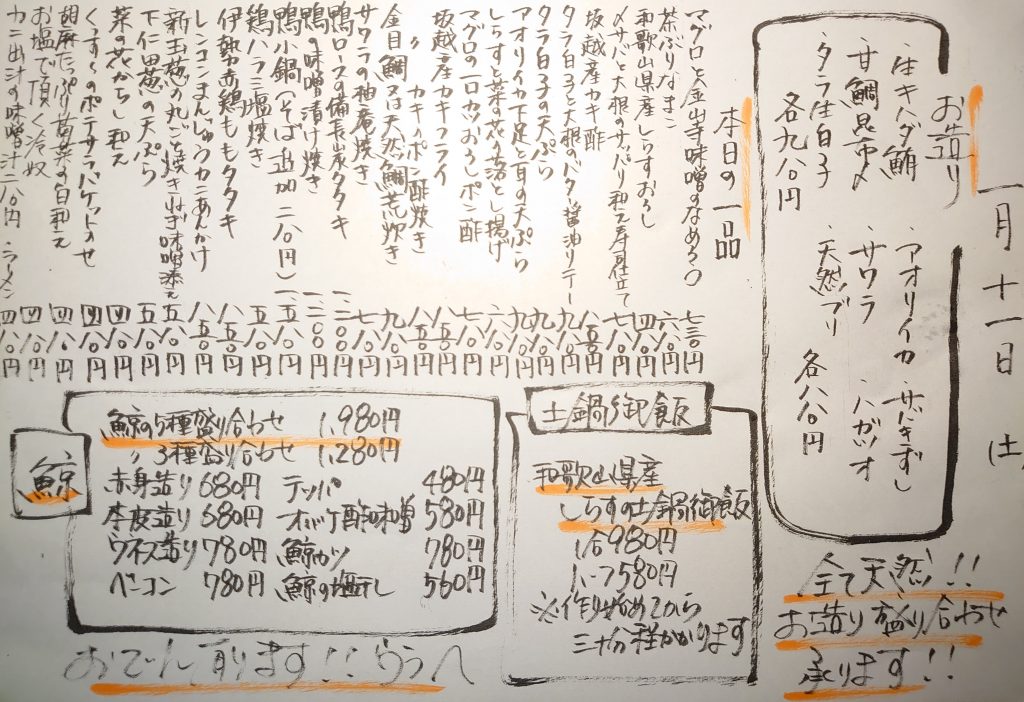 一月十一日 (土)
お造り
・生キハダ鮪
・甘鯛昆布〆
・タラ生白子
各九八〇円
・アオリイカ
・サワラ
・天然ブリ
・サバきずし
・ハガツオ
各八八〇円
全て天然!!
お造り盛り合わせ
承ります!!
本日の一品
マグロと金山寺味噌のなめろう 七三〇円
茶ぶりなまこ 六八〇円
和歌山県産しらすおろし 四八〇円
〆サバと大根のサッパリ和え寿司仕立て 七八〇円
坂越産カキ酢 八五〇円
タラ白子と大根のバター醤油ソテー 九八〇円
タラ白子の天ぷら 九八〇円
アオリイカ下足と耳の天ぷら 九八〇円
しらすと菜の花の落とし揚げ 六八〇円
マグロの一口カツおろしポン酢 七八〇円
坂越産カキフライ 八五〇円
〃 カキのポン酢炊き 八五〇円
金目鯛又は天然鯛荒炊き 九八〇円
サワラの柚庵焼き 七八〇円
鴨ロースの備長炭タタキ 一、二八〇円
鴨の味噌漬け焼き 一、二〇〇円
鴨小鍋(そば追加 二八〇円) 一、五八〇円
鶏ハラミ塩焼き 五八〇円
伊勢赤鶏ももタタキ 八五〇円
レンコンまんじゅうカニあんかけ 八五〇円
新玉葱の丸ごと焼きねぎ味噌添え 五八〇円
下仁田葱の天ぷら 五八〇円
菜の花からし和え 四八〇円
くっすんのポテサラバケットのせ 四八〇円
胡麻たっぷり菊菜の白和え 四八〇円
お塩で頂く冷奴 四八〇円
カニ出汁の味噌汁二八〇円 ・ラーメン 四八〇円
土鍋御飯
和歌山県産
しらすの土鍋御飯
1合980円
ハーフ580円
※作り始めてから
三十分程かかります
鯨
鯨の5種盛り合わせ 1,980円
〃 3種盛り合わせ 1,280円
赤身造り 680円 テッパ 480円
本皮造り 680円 オバケ酢味噌 580円
ウネス造り 780円 鯨カツ 780円
ベーコン 780円 鯨の塩干し 560円
おでん有ります!!